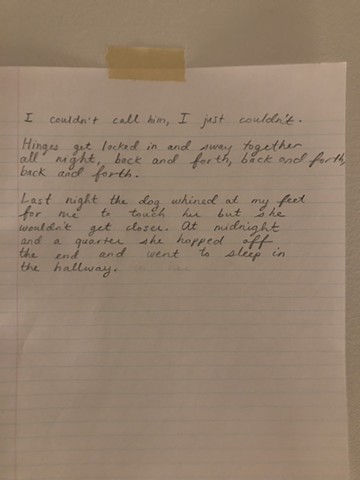 I couldn't call him, I just couldn't.
Hinges get locked in and sway together
all night, back and forth, back and forth,
back and forth.
Last night the dog whined at my feet
for me to touch her but she
wouldn't get closer. At midnight
and a quarter she hopped off
the end and went to sleep in
the hallway.